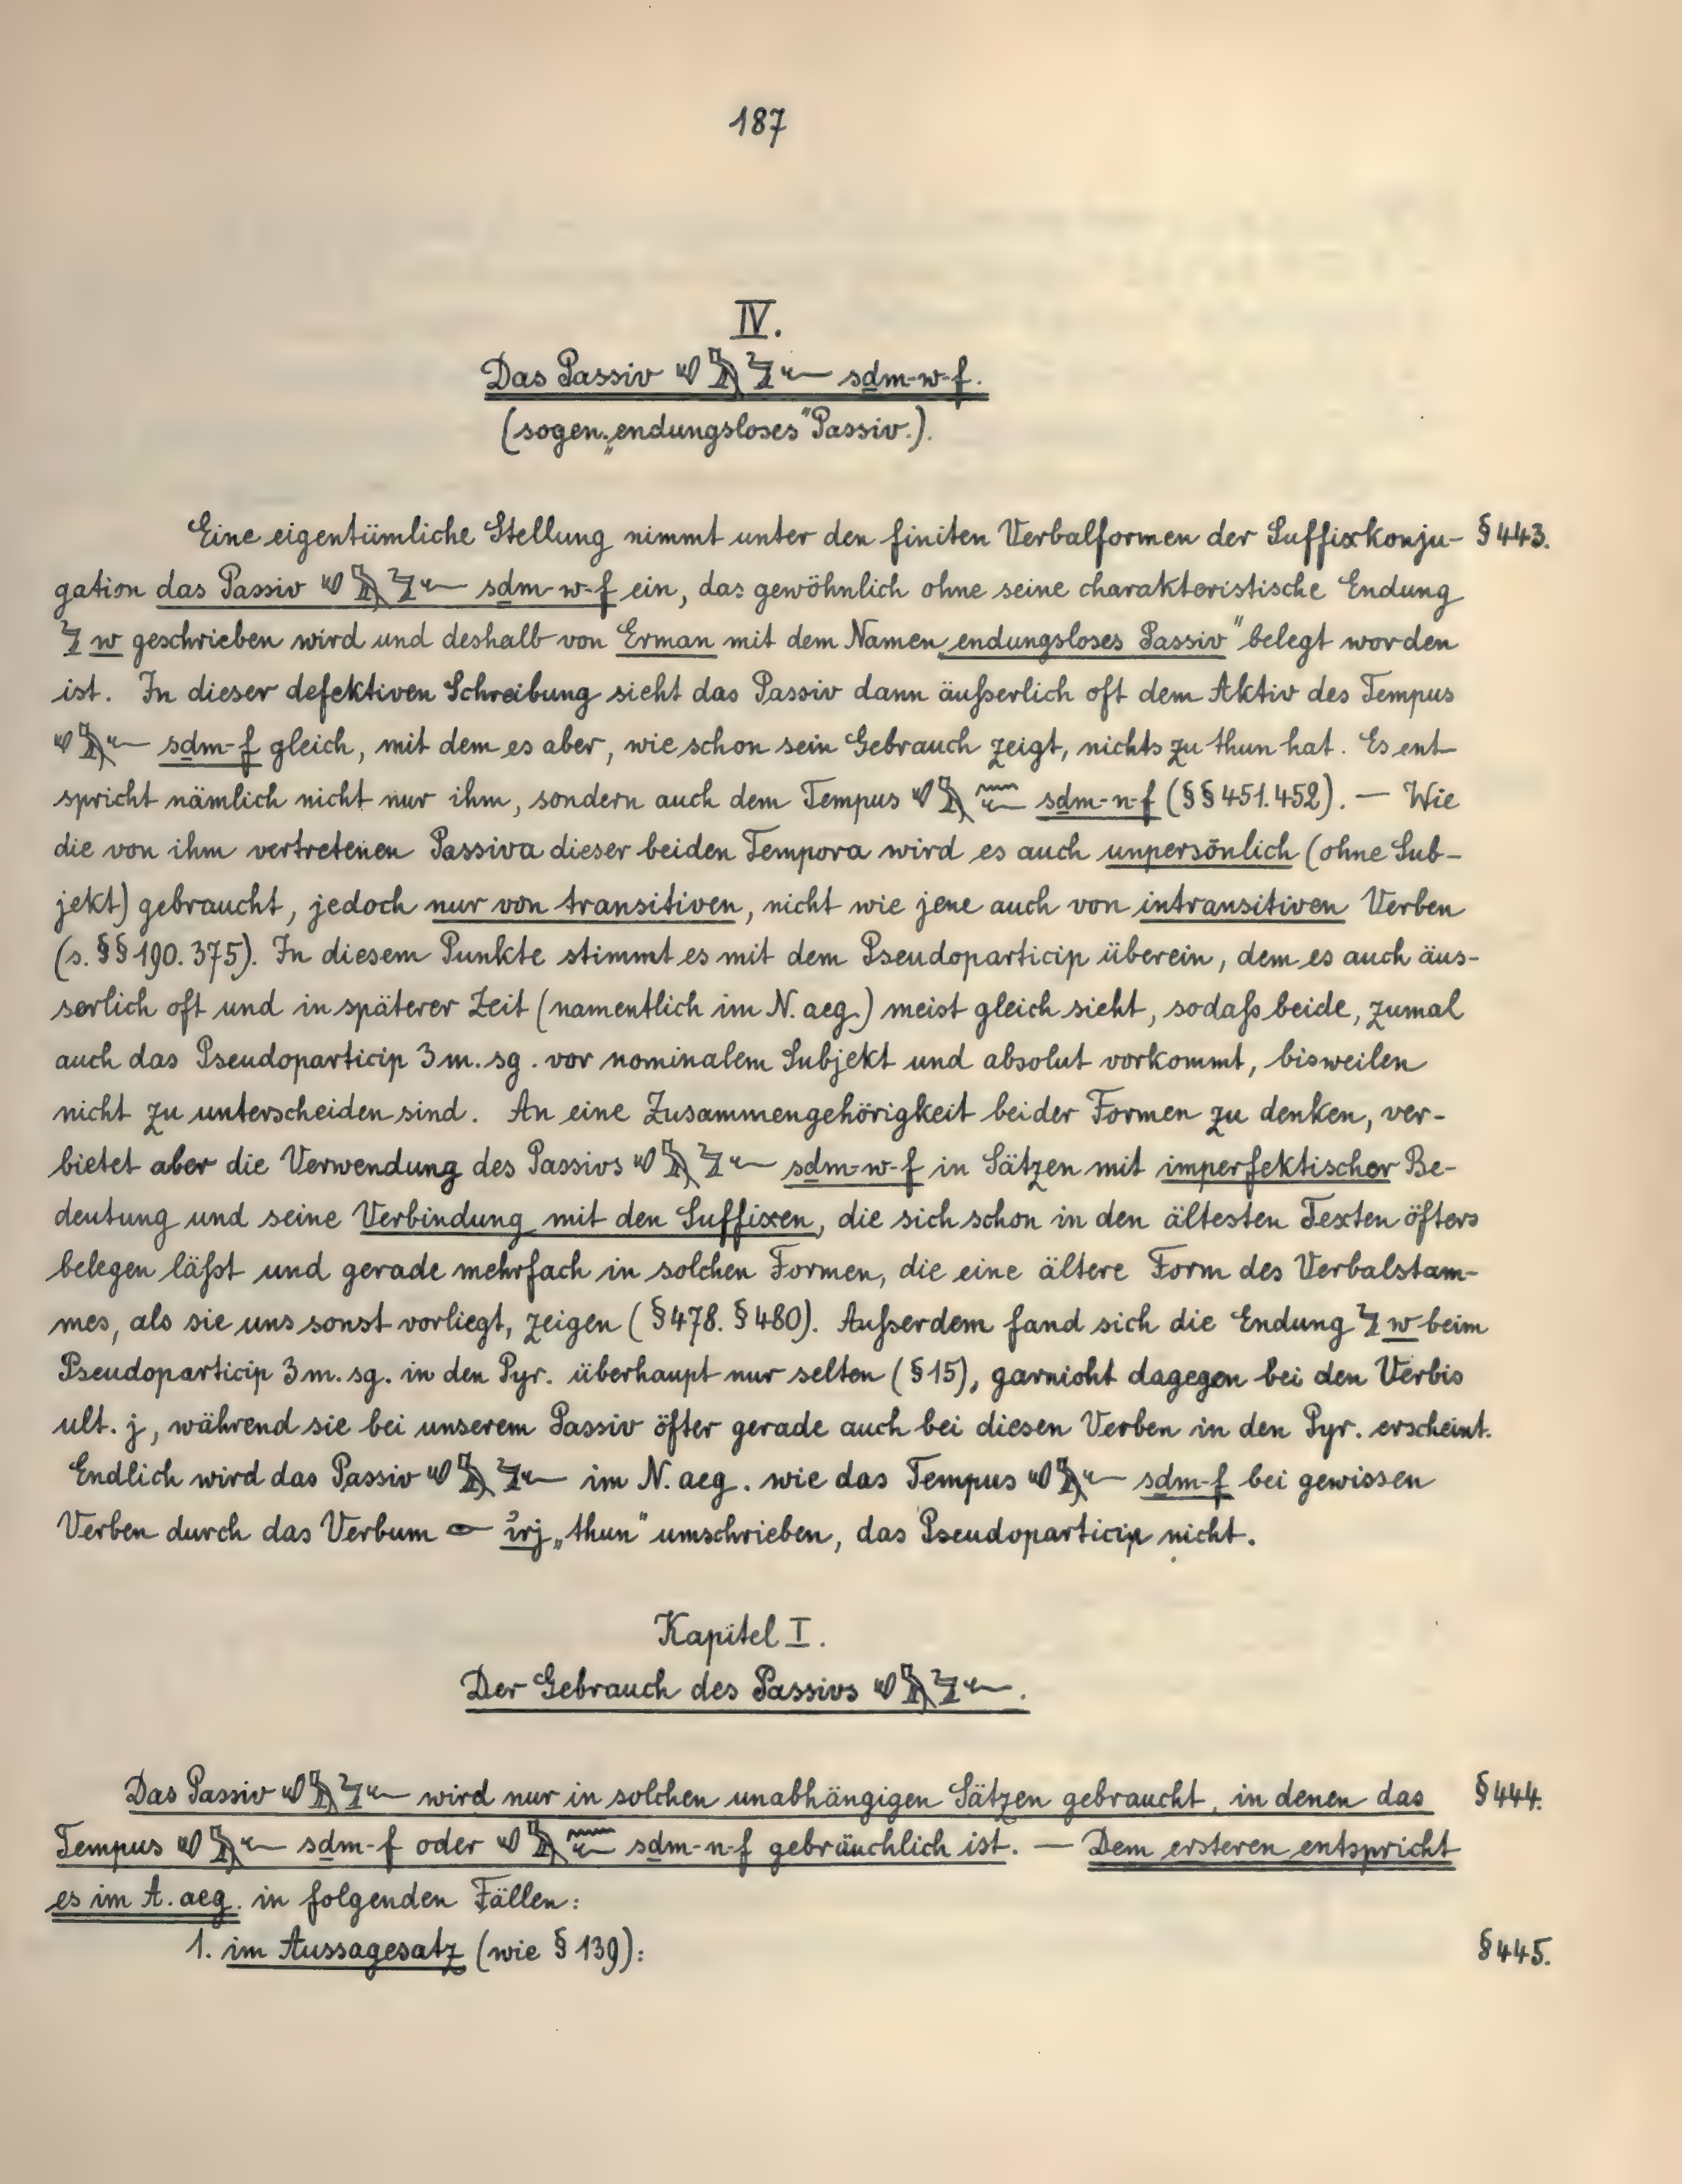 187
IV.
Das Passiv 𓄔𓅓𓅱𓆑 sḏm-w-f.
(sogen. „endungsloses" Passiv.).
Eine eigentümliche Stellung nimmt unter den finiten Verbalformen der Suffixkonju- § 443.
gation das Passiv 𓄔𓅓𓅱𓆑 sḏm-w-f ein, das gewöhnlich ohne seine charakteristische Endung
𓅱 w geschrieben wird und deshalb von Erman mit dem Namen „endungsloses Passiv" belegt worden
ist. In dieser defektiven Schreibung sieht das Passiv dann äußerlich oft dem Aktiv des Tempus
𓄔𓅓𓆑 sḏm-f gleich, mit dem es aber, wie schon sein Gebrauch zeigt, nichts zu thun hat. Es ent-
spricht nämlich nicht nur ihm, sondern auch dem Tempus 𓄔𓅓𓈖𓆑 sḏm-n-f (§§ 451. 452). — Wie
die von ihm vertretenen Passiva dieser beiden Tempora wird es auch unpersönlich (ohne Sub-
jekt) gebraucht, jedoch nur von transitiven, nicht wie jene auch von intransitiven Verben
(s. §§ 190. 375). In diesem Punkte stimmt es mit dem Pseudoparticip überein, dem es auch äus-
serlich oft und in späterer Zeit (namentlich im N. aeg.) meist gleich sieht, sodaß beide, zumal
auch das Pseudoparticip 3 m. sg. vor nominalem Subjekt und absolut vorkommt, bisweilen
nicht zu unterscheiden sind. An eine Zusammengehörigkeit beider Formen zu denken, ver-
bietet aber die Verwendung des Passivs 𓄔𓅓𓅱𓆑 sḏm-w-f in Sätzen mit imperfektischer Be-
deutung und seine Verbindung mit den Suffixen, die sich schon in den ältesten Texten öfters
belegen läßt und gerade mehrfach in solchen Formen, die eine ältere Form des Verbalstam-
mes, als sie uns sonst vorliegt, zeigen (§ 478. § 480). Außerdem fand sich die Endung 𓅱 w beim
Pseudoparticip 3 m. sg. in den Pyr. überhaupt nur selten (§ 15), garnicht dagegen bei den Verbis
ult. j, während sie bei unserem Passiv öfter gerade auch bei diesen Verben in den Pyr. erscheint.
Endlich wird das Passiv 𓄔𓅓𓅱𓆑 im N. aeg. wie das Tempus 𓄔𓅓𓆑 sḏm-f bei gewissen
Verben durch das Verbum 𓁹 ỉrj „thun" umschrieben, das Pseudoparticip nicht.
Kapitel I.
Der Gebrauch des Passivs 𓄔𓅓𓅱𓆑.
Das Passiv 𓄔𓅓𓅱𓆑 wird nur in solchen unabhängigen Sätzen gebraucht, in denen das § 444.
Tempus 𓄔𓅓𓆑 sḏm-f oder 𓄔𓅓𓈖𓆑 sḏm-n-f gebräuchlich ist. — Dem ersteren entspricht
es im A. aeg. in folgenden Fällen:
1. im Aussagesatz (wie § 139): § 445.